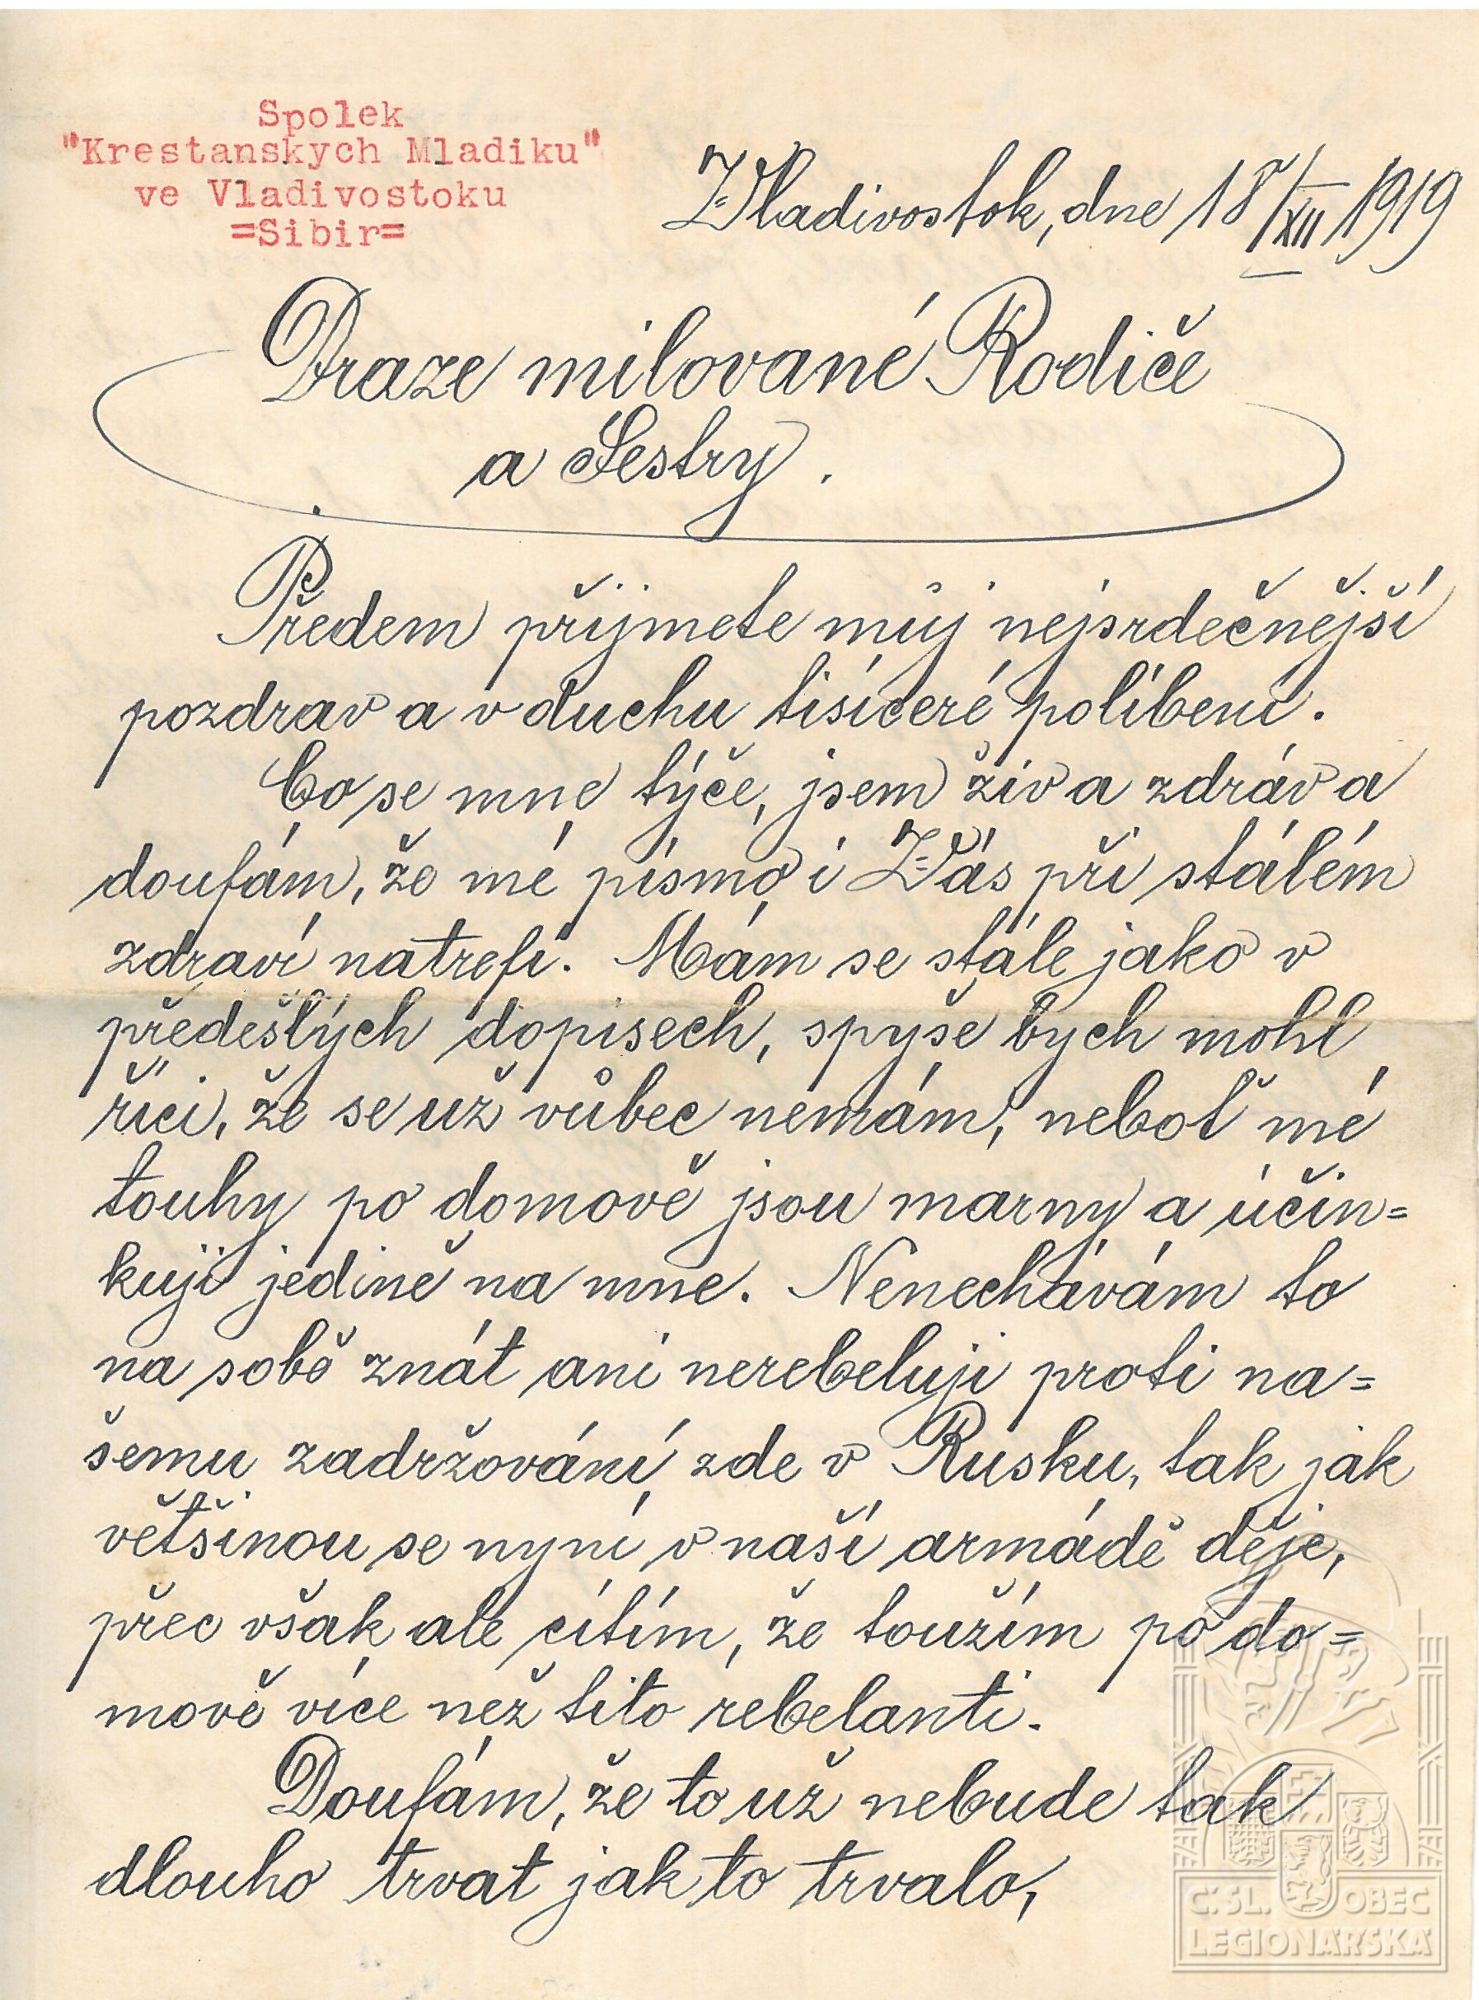 Spolek
"Krestanskych Mladiku"
ve Vladivostoku
=Sibir=
Vladivostok, dne 18/XII 1919
Draze milované Rodiče
a Sestry.
Předem přijmete můj nejsrdečnější
pozdrav a v duchu tisíceré políbení.
Co se mne týče, jsem živ a zdráv a
doufám, že mé písmo i Vás při stálém
zdraví natrefí. Mám se stále jako v
předešlých dopisech, spýše bych mohl
říci, že se už vůbec nemám, neboť mé
touhy po domově jsou marny a účin=
kují jedině na mne. Nenechávám to
na sobě znát ani nerebeluji proti na=
šemu zadržování zde v Rusku, tak jak
většinou se nyní v naší armádě děje,
přec však ale cítím, že toužím po do=
mově více než tito rebelanti.
Doufám, že to už nebude tak
dlouho trvat jak to trvalo,
Č.SL. OBEC
LEGIONÁŘSKÁ